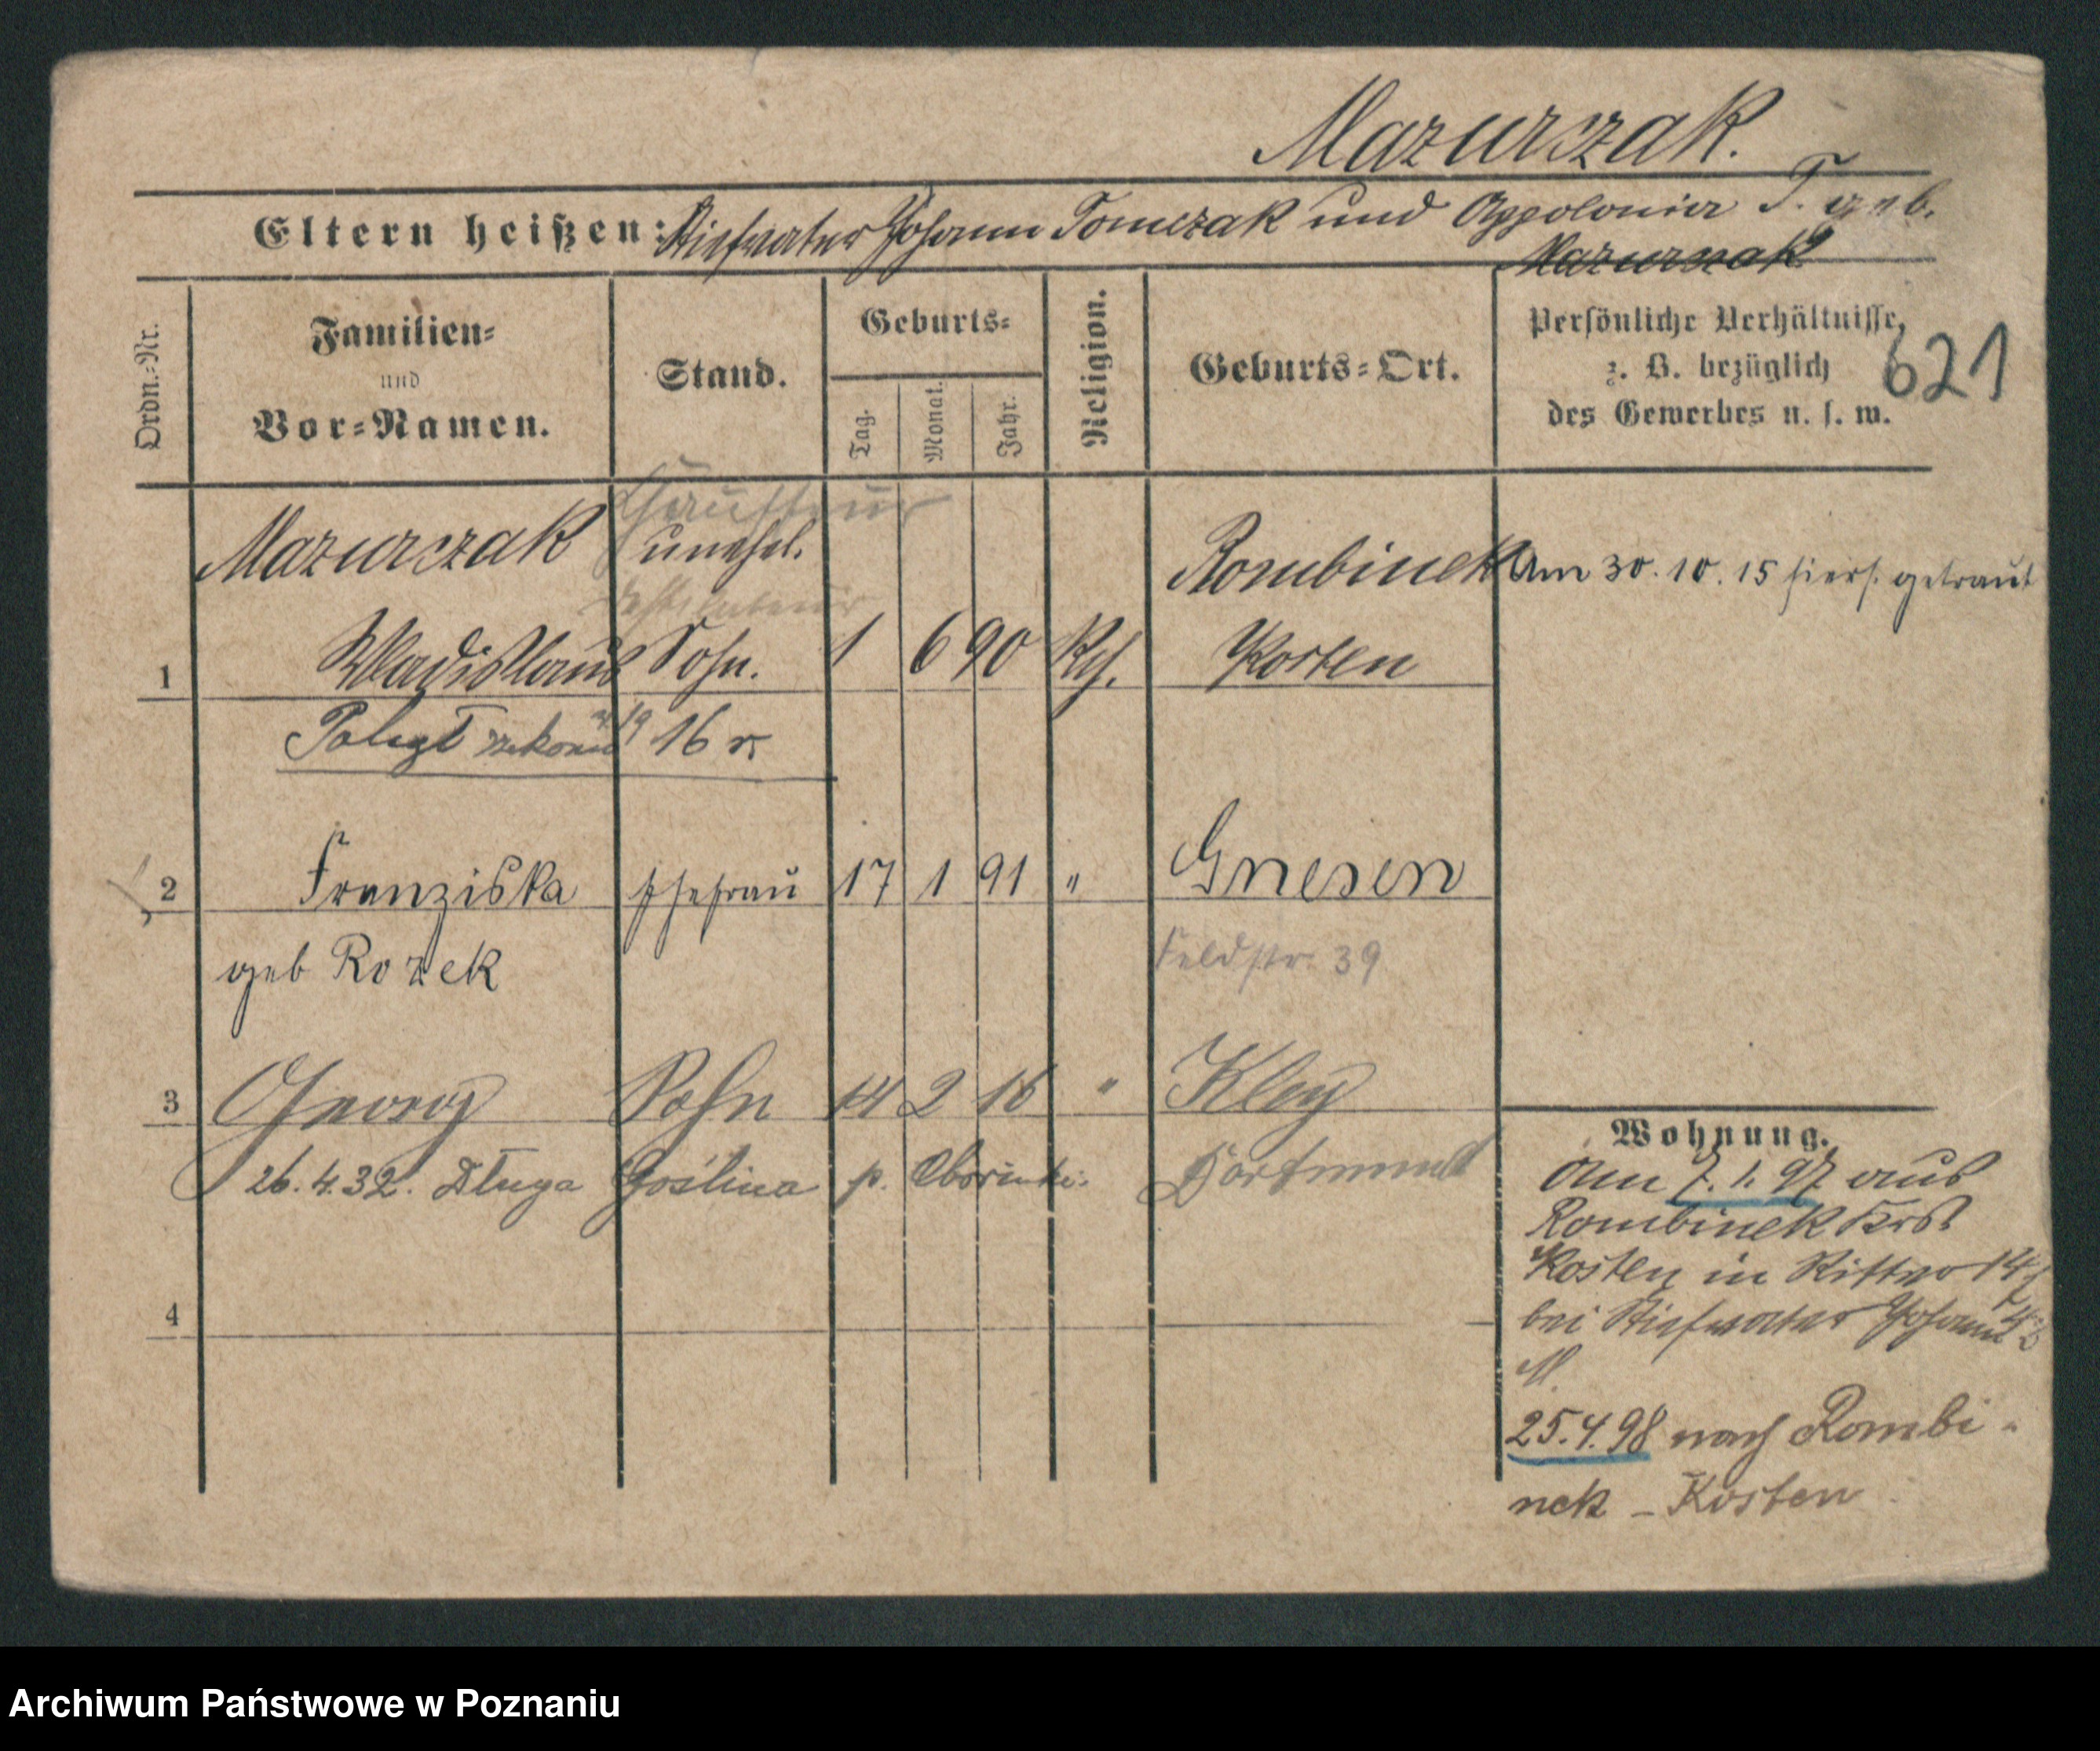 Mazurczak.
Eltern heißen: Stiefvater Johann Tomczak und Appolonia T. geb.
Mazurczak
Ordn.-Nr.
Familien-
und
Vor-Namen.
Stand.
Geburts-
Tag.
Monat.
Jahr.
Religion.
Geburts-Ort.
Persönliche Verhältnisse,
z. B. bezüglich
des Gewerbes u. s. w.
621
Chauffeur
Mazurczak unehel. Rombinek Am 30. 10. 15 hiers. getraut
1 Wladislaus Sohn. 1 6 90 Kth. Kosten
16 r
2 Franziska Ehefrau 17 1 91 " Gnesen
geb Rozek
Feldstr. 39
3 Georg Sohn 14 2 16 " Kley
26. 4. 32. Długa Goślina p. Dortmund
4
Wohnung.
Am 7. 1. 97 aus
Rombinek Krs.
Kosten in Ritter 14
bei Stiefvater Johann
M.
25. 4. 98 nach Rombi-
nek - Kosten
Archiwum Państwowe w Poznaniu